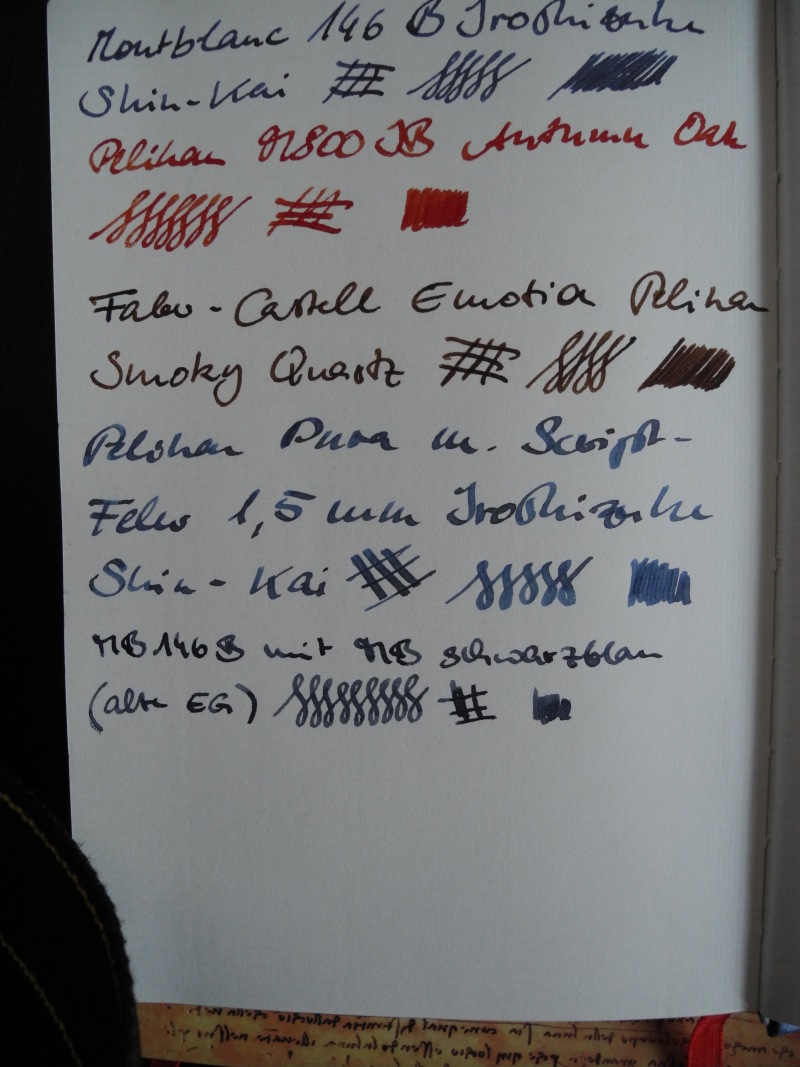 Montblanc 146 B Iroshizuku
Shin-Kai
Pelikan M800 IB Autumn Oak
Faber-Castell Emotion Pelikan
Smoky Quartz
Pelikan Pura m. Script-
Feder 1,5 mm Iroshizuku
Shin-Kai
MB 146 B mit MB schwarzblau
(alte EG)